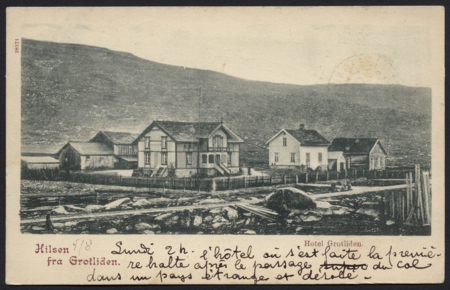 Hilsen 5/8
fra Grotliden.
Hotel Grotliden.
Lundi 2 h. l'hôtel où s'est faite la premiè-
re halte après le passage du col
dans un pays étrange et désolé.